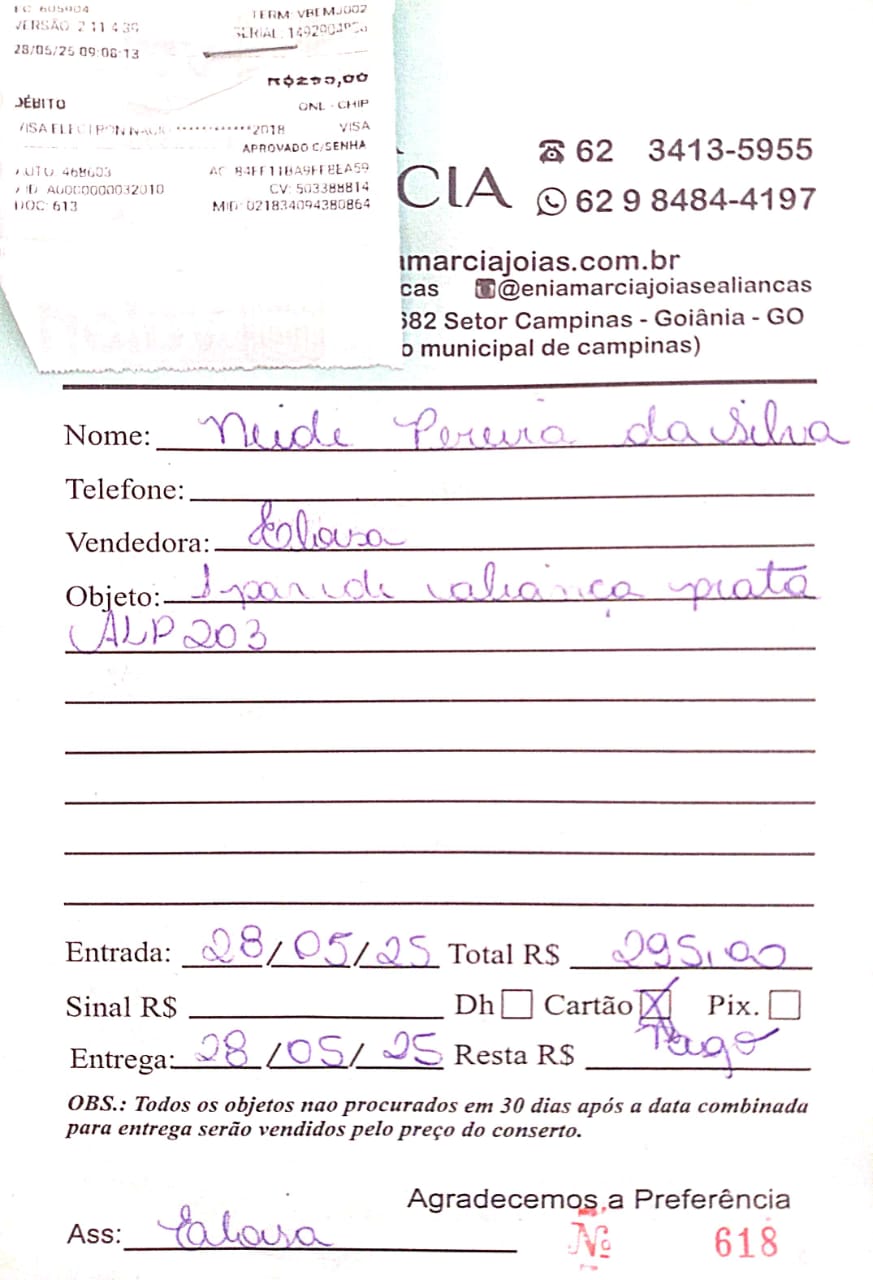 TERM: VBEMJ002
VERSÃO 2 11 4 39
28/05/25 09:08:13
DÉBITO ONL - CHIP
VISA ELECTRON ************2018 VISA
APROVADO C/SENHA
CV: 503388814
DOC: 613 MID: 021834094380864
CIA
62 3413-5955
62 9 8484-4197
marciajoias.com.br
cas @eniamarciajoiasealiancas
682 Setor Campinas - Goiânia - GO
o municipal de campinas)
Nome: Neide Pereira da Silva
Telefone:
Vendedora:
Objeto: 1 par de aliança prata
ALP 203
Entrada: 28/05/25 Total R$ 295,00
Sinal R$ Dh Cartão X Pix.
Entrega: 28/05/25 Resta R$ Pago
OBS.: Todos os objetos nao procurados em 30 dias após a data combinada
para entrega serão vendidos pelo preço do conserto.
Agradecemos a Preferência
Ass:
Nº 618